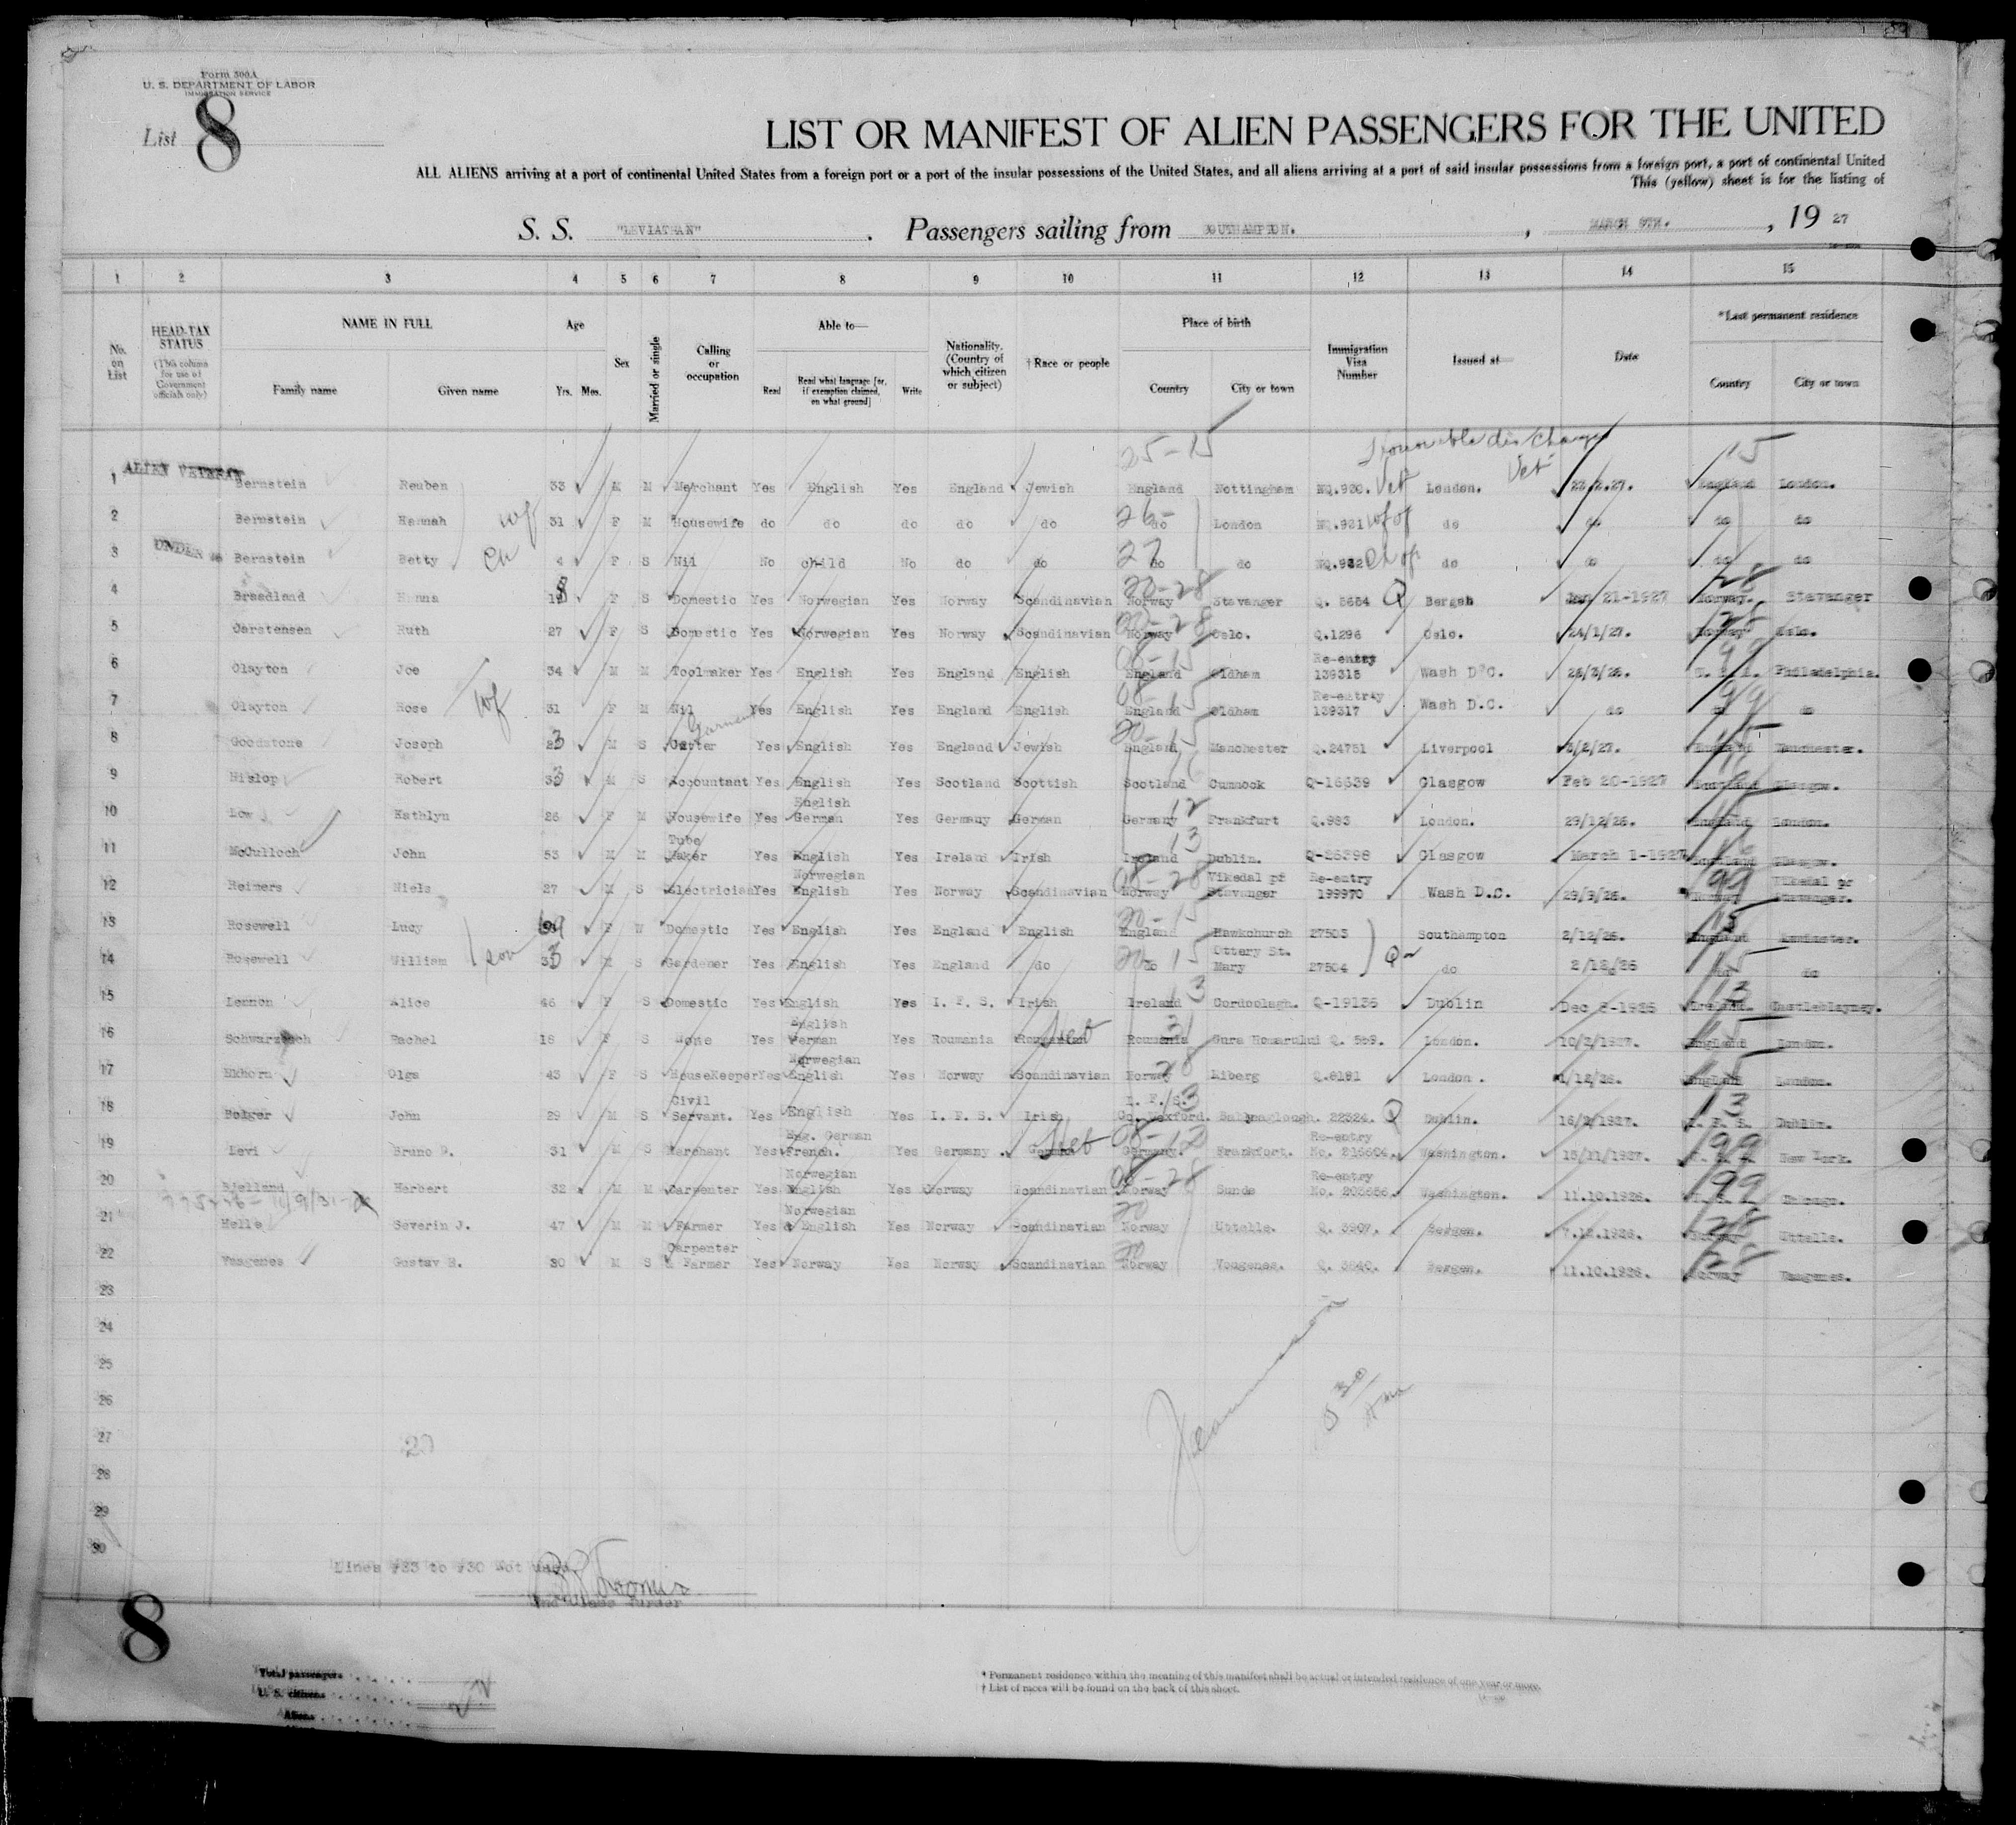 Form 500A
U. S. DEPARTMENT OF LABOR
IMMIGRATION SERVICE
List 8
LIST OR MANIFEST OF ALIEN PASSENGERS FOR THE UNITED
ALL ALIENS arriving at a port of continental United States from a foreign port or a port of the insular possessions of the United States, and all aliens arriving at a port of said insular possessions from a foreign port, a port of continental United
This (yellow) sheet is for the listing of
S. S. "LEVIATHAN" . Passengers sailing from SOUTHAMPTON. , MARCH 9TH. , 19 27
1 2 3 4 5 6 7 8 9 10 11 12 13 14 15
No. on List
HEAD-TAX STATUS (This column for use of Government officials only)
NAME IN FULL Family name Given name
Age Yrs. Mos.
Sex
Married or single
Calling or occupation
Able to— Read Read what language [or, if exemption claimed, on what ground] Write
Nationality. (Country of which citizen or subject)
† Race or people
Place of birth Country City or town
Immigration Visa Number
Issued at—
Date
*Last permanent residence Country City or town
25-15 Honorable discharge Vet 15
1 ALIEN VETERAN Bernstein Reuben 33 M M Merchant Yes English Yes England Jewish England Nottingham NQ.930. Vet London. 15
2 Bernstein Hannah wf 31 F M Housewife do do do do do 26- do London NQ.931 wf of do do do do
3 UNDER 16 Bernstein Betty Ch 4 F S Nil No child No do do 27 do do NQ.932 Ch of do do do do
4 Braadland Hanna 18 F S Domestic Yes Norwegian Yes Norway Scandinavian 20-28 Norway Stavanger Q. 5654 Q Bergen Jan 21-1927 28 Norway. Stavanger
5 Carstensen Ruth 27 F S Domestic Yes Norwegian Yes Norway Scandinavian 20-28 Norway Oslo. Q.1296 Oslo. 24/1/27. 28 Norway Oslo.
6 Clayton Joe 34 M M Toolmaker Yes English Yes England English 08-15 England Oldham Re-entry 139318 Wash D.C. 99 U. S. A. Philadelphia.
7 Clayton Rose wf 31 F M Nil Yes English Yes England English 08-15 England Oldham Re-entry 139317 Wash D.C. do 99 do do
8 Goodstone Joseph 23 M S Garment Cutter Yes English Yes England Jewish 20-15 England Manchester Q.24751 Liverpool 15 England Manchester.
9 Hislop Robert 33 M S Accountant Yes English Yes Scotland Scottish Scotland Cumnock Q-16639 Glasgow Feb 20-1927 Scotland Glasgow.
10 Low Kathlyn 26 F M Housewife Yes English German Yes Germany German 12 Germany Frankfurt Q.983 London. 29/12/26. 15 England London.
11 McCulloch John 53 M M Tube Maker Yes English Yes Ireland Irish 13 Ireland Dublin. Q-26398 Glasgow March 1-1927 Scotland Glasgow.
12 Reimers Niels 27 M S Electrician Yes Norwegian English Yes Norway Scandinavian 08-28 Norway Vikedal pr Stavanger Re-entry 199970 Wash D.C. 29/9/26. 99 Norway Vikedal pr Stavanger.
13 Rosewell Lucy 69 F W Domestic Yes English Yes England English 20-15 England Hawkchurch 27503 Southampton 2/12/26. 15 England
14 Rosewell William son 33 M S Gardener Yes English Yes England do 20 do 15 Ottery St. Mary 27504 do 2/12/26 15 do do
15 Lennon Alice 46 F S Domestic Yes English Yes I. F. S. Irish 13 Ireland Cordoolagh. Q-19136 Dublin 13 Ireland. Castleblayney.
16 Rachel 18 F S None Yes English German Yes Roumania Heb 31 Roumania Gura Homarului Q. 559. London. 10/2/1927. 15 England London.
17 Ekhorn Olga 43 F S HouseKeeper Yes Norwegian English Yes Norway Scandinavian 28 Norway Liberg Q.8181 London. 1/12/26. 15 England London.
18 Bolger John 29 M S Civil Servant. Yes English Yes I. F. S. Irish I. F. S. 13 Co. Wexford. Ballynaglough. 22324. Q Dublin. 16/2/1927. 13 I. F. S. Dublin.
19 Levi Bruno D. 31 M S Merchant Yes Eng. German French. Yes Germany. Heb 08-12 Germany. Frankfurt. Re-entry No. 216604. Washington. 15/11/1927. 99 U. S. A. New York.
20 Bjelland Herbert 32 M M Carpenter Yes Norwegian English Yes Norway Scandinavian 08-28 Norway Sunde Re-entry No. 203656. Washington. 11.10.1926. 99 U. S. A. Chicago.
21 Helle Severin J. 47 M M Farmer Yes Norwegian & English Yes Norway Scandinavian 20 Norway Uttelle. Q. 3907. Bergen. 7.12.1926. 28 Uttelle.
22 Gustav H. 30 M S Carpenter & Farmer Yes Norway Yes Norway Scandinavian 20 Norway Vougenes. Q. 3840. Bergen. 11.10.1926. 28 Norway
23
24
25
26
27
28
29
30
Lines #23 to #30 Not used.
2nd Class Purser
8
Total passengers
U. S. citizens
Aliens
* Permanent residence within the meaning of this manifest shall be actual or intended residence of one year or more.
† List of races will be found on the back of this sheet.